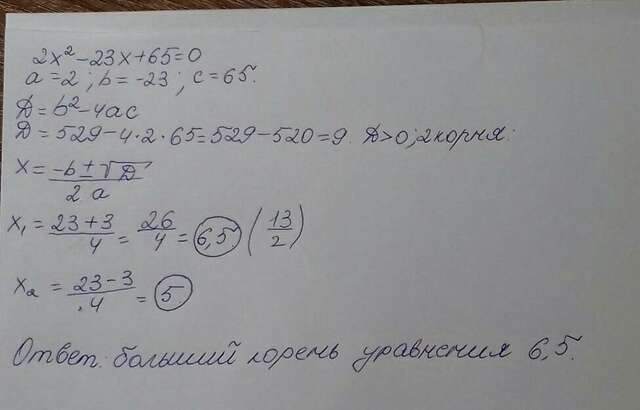 2x²-23x+65=0
a=2; b=-23; c=65.
D=b²-4ac
D=529-4·2·65=529-520=9. D>0; 2 корня.
x = (-b±√D)/(2a)
x₁ = (23+3)/4 = 26/4 = 6,5 (13/2)
x₂ = (23-3)/4 = 5
Ответ: больший корень уравнения 6,5.